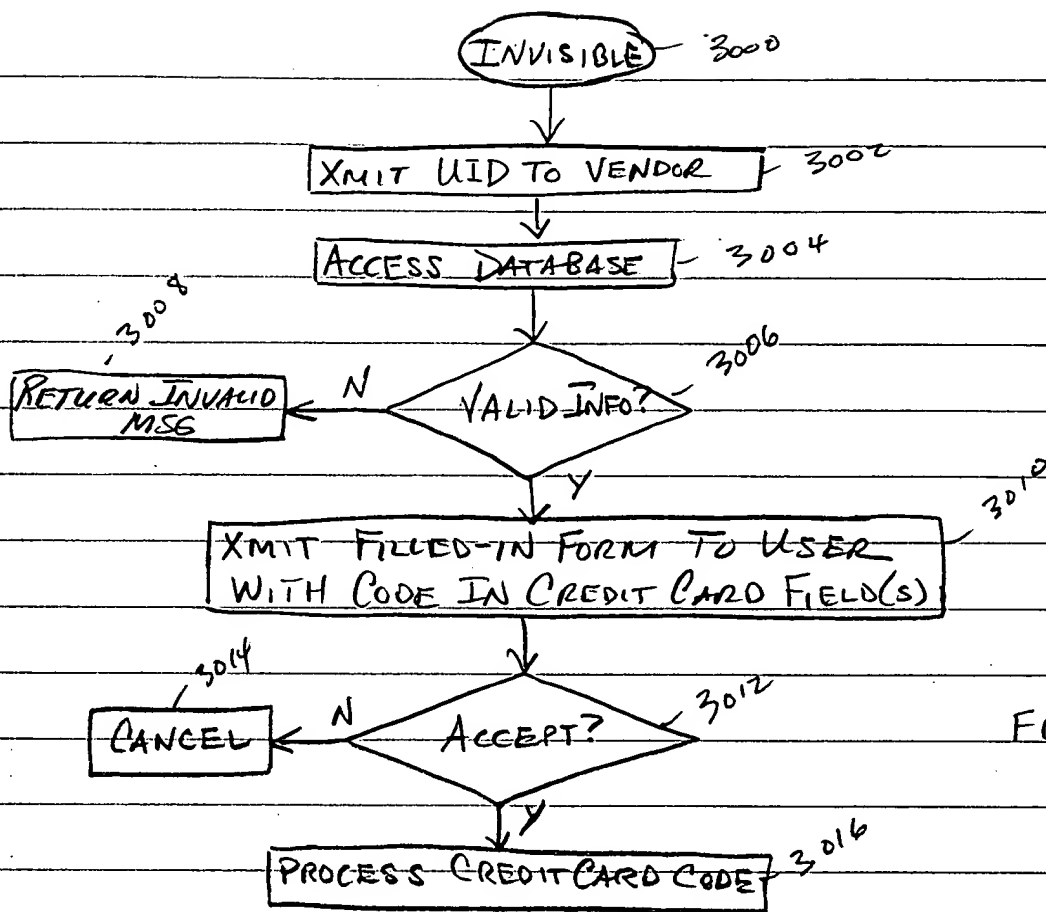 INVISIBLE 3000
XMIT UID TO VENDOR 3002
ACCESS DATABASE 3004
3008
3006
RETURN INVALID
MSG
N
VALID INFO?
Y
3010
XMIT FILLED-IN FORM TO USER
WITH CODE IN CREDIT CARD FIELD(S)
3014
3012
CANCEL
N
ACCEPT?
Y
PROCESS CREDIT CARD CODE 3016